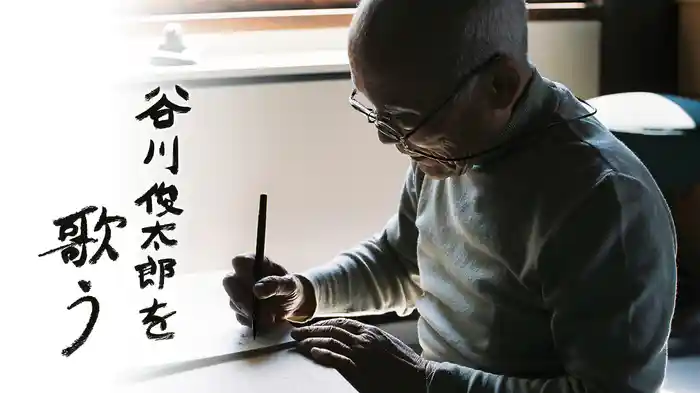 谷川俊太郎を
歌う